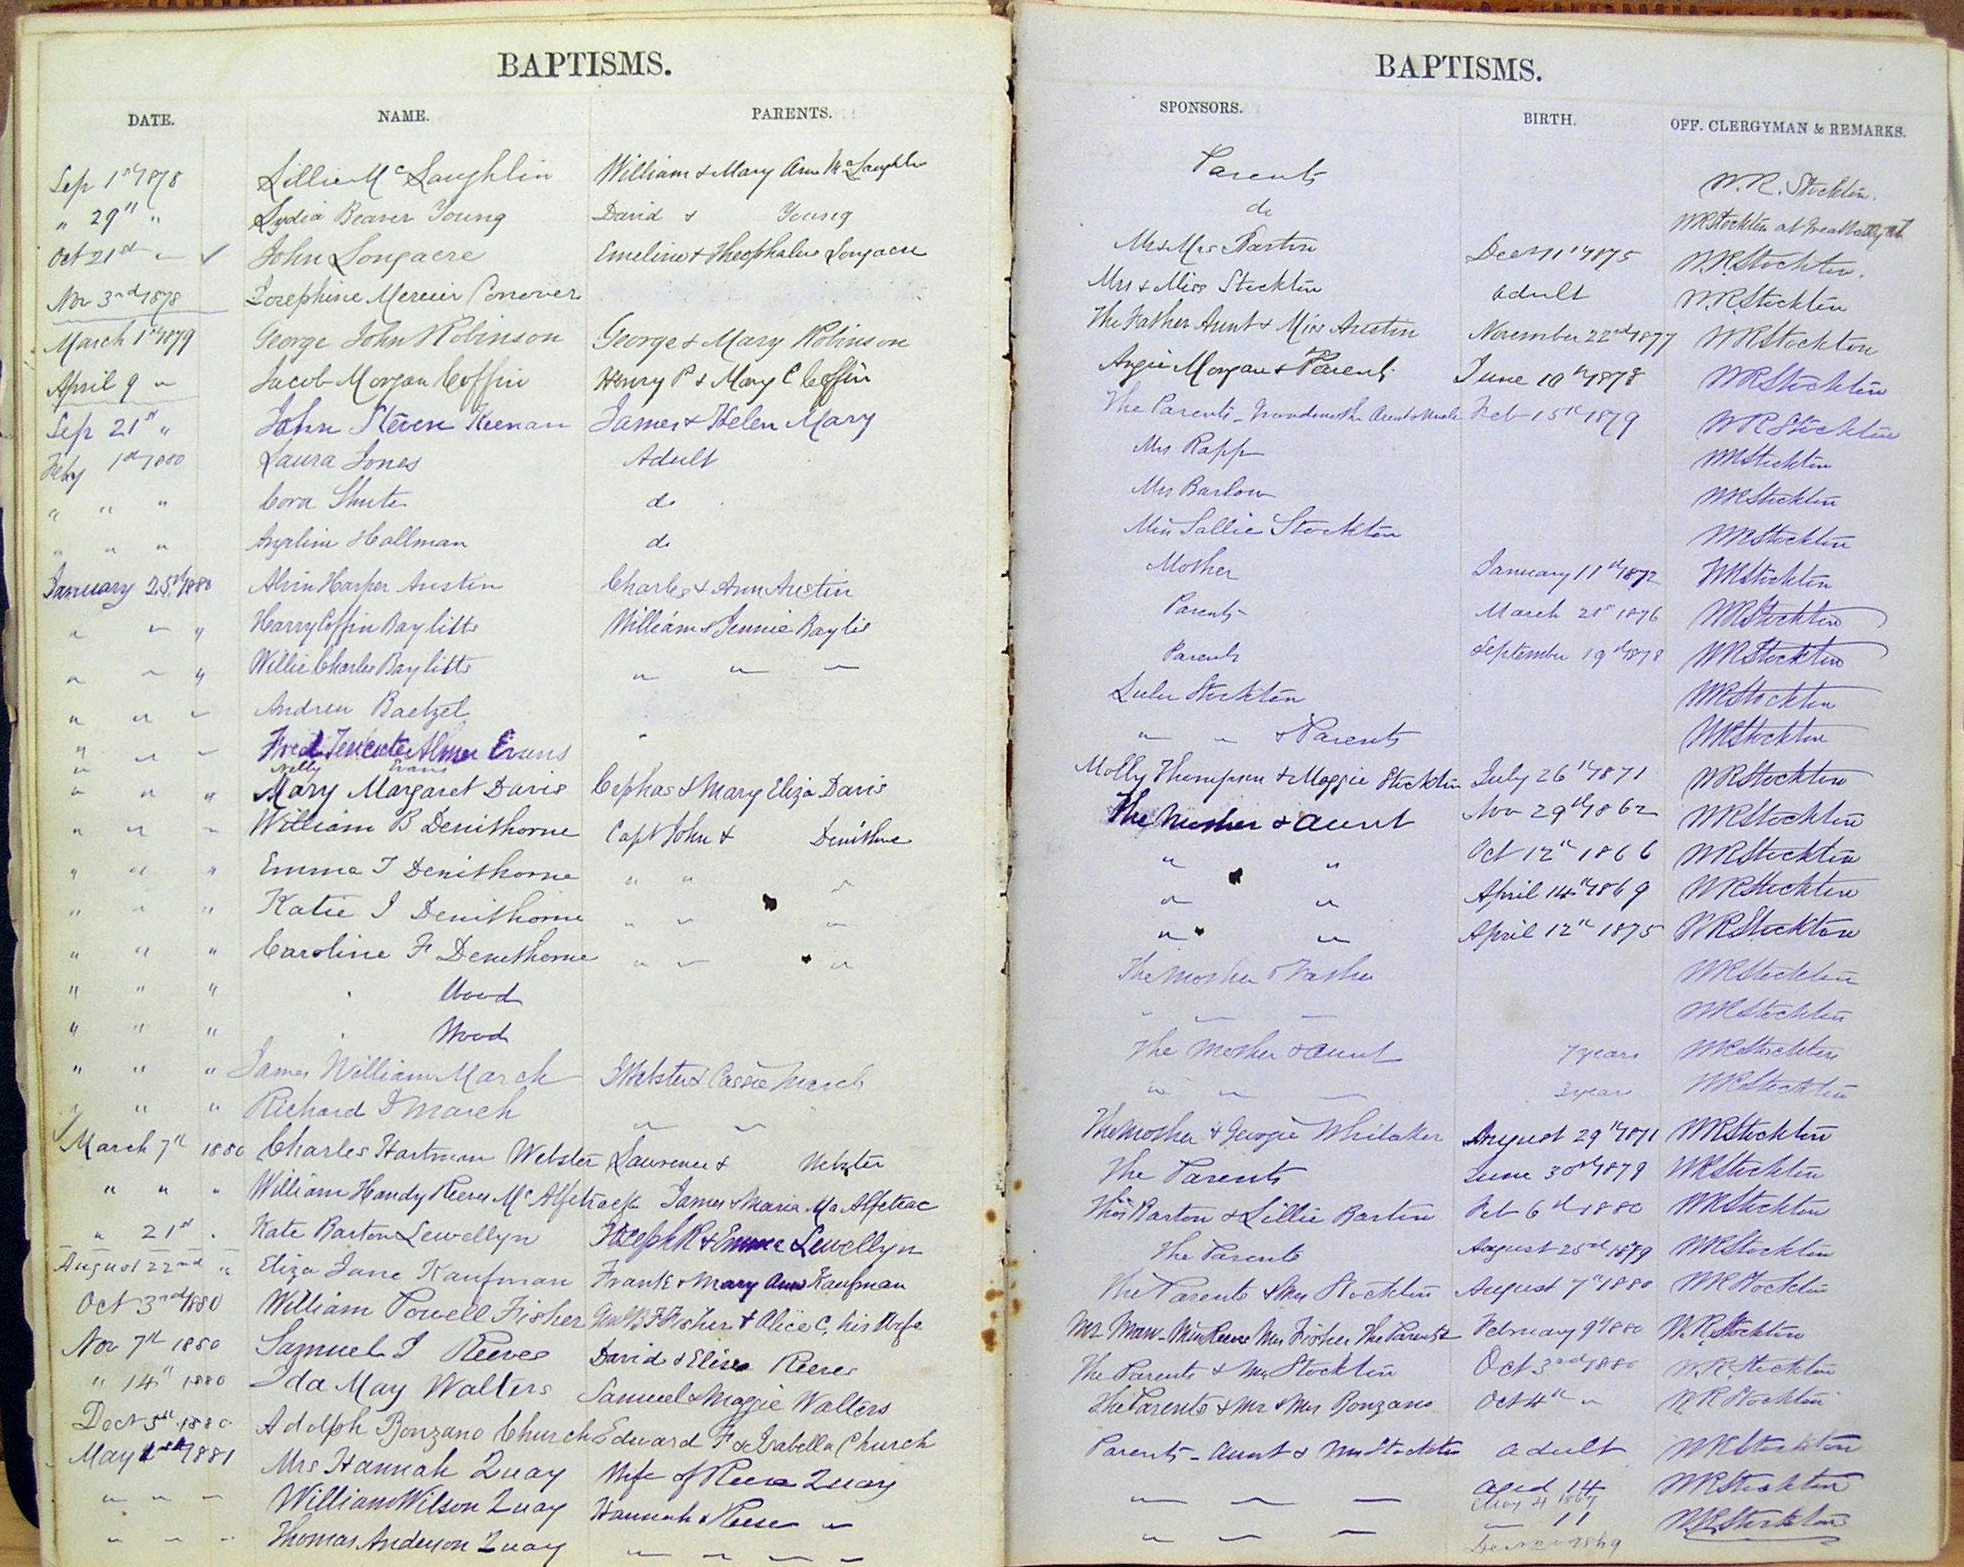 BAPTISMS.
DATE. NAME. PARENTS.
Sep 1st 1878 Lillie McLaughlin William & Mary Ann McLaughlin
" 29th " Lydia Beaver Young David & Young
Oct 21st " John Longacre Emeline & Theophalus Longacre
Nov 3rd 1878 Josephine Mercier Conover
March 1st 1879 George John Robinson George & Mary Robinson
April 9 " Jacob Morgan Coffin Henry P & Mary C Coffin
Sep 21st " John Steven Keenan James & Helen Mary
Feby 1st 1880 Laura Jones Adult
" " " Cora Shute do
" " " Angeline Hallman do
January 25th 1880 Alvin Harper Austin Charles & Ann Austin
" " " Harry Coffin Baylitts William & Jennie Baylis
" " " Willie Charles Baylitts " " "
" " " Andrew Baetzel
" " " Fred Almer Evans
" Nelly Evans
" " " Mary Margaret Davis Cephas & Mary Eliza Davis
" " " William B Denithorne Capt John & Denithorne
" " " Emma T Denithorne " " "
" " " Katie I Denithorne " " "
" " " Caroline F Denithorne " " "
" " " Wood
" " " Wood
" " " James William March & Cassie March
" " " Richard I March " "
March 7th 1880 Charles Hartman Webster Lawrence & Webster
" " " William Handy Reeves James & Maria
" 21st " Kate Barton Lewellyn Joseph R & Emma Lewellyn
August 22nd " Eliza Jane Kaufman Frank & Mary Ann Kaufman
Oct 3rd 1880 William Powell Fisher Geo B F Fisher & Alice C. his Wife
Nov 7th 1880 Samuel I Reeves David & Eliza Reeves
" 14th 1880 Ida May Walters Samuel & Maggie Walters
Dect 5th 1880 Adolph Bonzano Church Edward F & Isabella Church
May 1st 1881 Mrs Hannah Quay Wife of Reese Quay
" " " William Wilson Quay Hannah & Reese "
" " " Thomas Anderson Quay " " " "
BAPTISMS.
SPONSORS. BIRTH. OFF. CLERGYMAN & REMARKS.
Parents W. R. Stockton.
do WR Stockton at Great Valley
Mr & Mrs Barton Dec 11th 1875 W.R. Stockton.
Mrs & Miss Stockton adult W.R. Stockton
The Father Aunt & Miss Austin November 22nd 1877 WR Stockton
Angie Morgan & the Parents June 10th 1878 WR Stockton
The Parents - Grandmother Aunt & Uncle Feb 15th 1879 WR Stockton
Mrs Rapp WR Stockton
Mrs Barlow WR Stockton
Miss Sallie Stockton WR Stockton
Mother January 11th 1872 WR Stockton
Parents March 21st 1876 WR Stockton
Parents September 19th 1878 WR Stockton
Lulu Stockton WR Stockton
" " & Parents WR Stockton
Molly Thompson & Maggie Stockton July 26th 1871 WR Stockton
The Mother & Aunt Nov 29th 1862 WR Stockton
" " Oct 12th 1866 WR Stockton
" " April 14th 1869 WR Stockton
" " April 12th 1875 WR Stockton
The Mother & Father WR Stockton
" " " WR Stockton
The Mother & Aunt 7 years WR Stockton
" " " 3 years WR Stockton
The Mother & Georgie Whitaker August 29th 1871 WR Stockton
The Parents June 30th 1879 WR Stockton
Thos Barton & Lillie Barton Feb 6th 1880 WR Stockton
The Parents August 25th 1879 WR Stockton
The Parents & Mrs Stockton August 7th 1880 WR Stockton
Mr Maw Miss Reeve Mrs Fisher The Parents February 9th 1880 W.R. Stockton
The Parents & Mrs Stockton Oct 3rd 1880 W.R. Stockton
The Parents & Mr & Mrs Bonzano Oct 4th " WR Stockton
Parents - Aunt & Mrs Stockton adult WR Stockton
" " " aged 14 WR Stockton
May 4 1867
" " " " 11 W.R. Stockton
1869